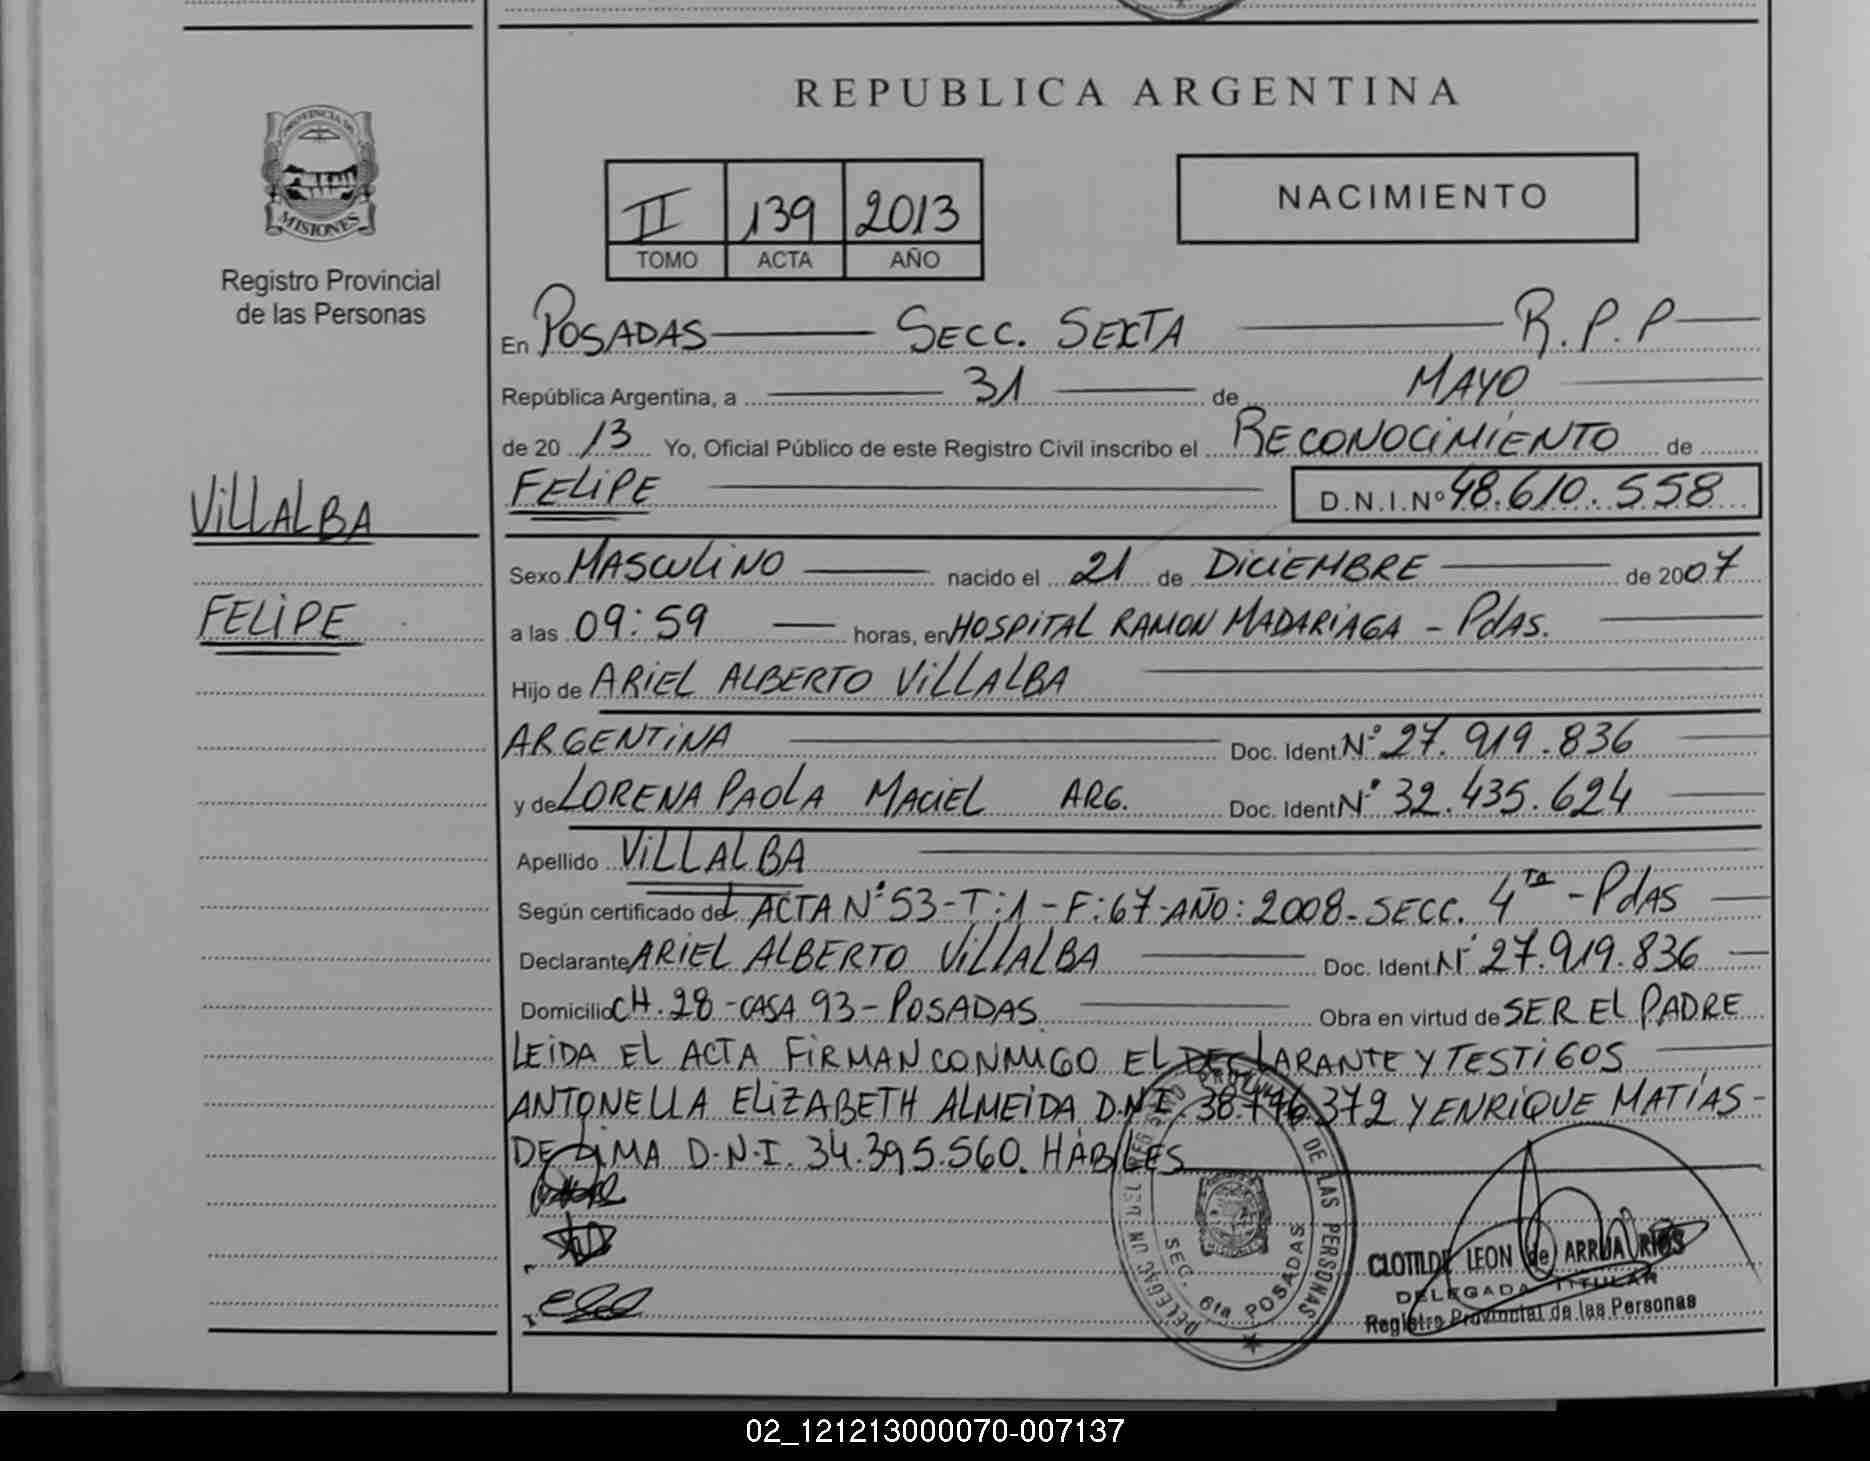 REPUBLICA ARGENTINA
PROVINCIA DE
MISIONES
Registro Provincial
de las Personas
II 139 2013
TOMO ACTA AÑO
NACIMIENTO
En POSADAS SECC. SEXTA R.P.P
República Argentina, a 31 de MAYO
de 20 13 Yo, Oficial Público de este Registro Civil inscribo el RECONOCIMIENTO de
VILLALBA
FELIPE D.N.I.Nº 48.610.558
Sexo MASCULINO nacido el 21 de DICIEMBRE de 2007
FELIPE
a las 09:59 horas, en HOSPITAL RAMON MADARIAGA - Pdas.
Hijo de ARIEL ALBERTO VILLALBA
ARGENTINA Doc. Ident Nº 27.919.836
y de LORENA PAOLA MACIEL ARG. Doc. Ident Nº 32.435.624
Apellido VILLALBA
Según certificado del ACTA Nº 53-T:1-F:67-AÑO:2008-SECC. 4ta-Pdas
Declarante ARIEL ALBERTO VILLALBA Doc. Ident Nº 27.919.836
Domicilio CH.28-CASA 93-POSADAS Obra en virtud de SER EL PADRE
LEIDA EL ACTA FIRMAN CONMIGO EL DECLARANTE Y TESTIGOS
ANTONELLA ELIZABETH ALMEIDA D.N.I. 38.796.372 Y ENRIQUE MATÍAS-
DE LIMA D.N.I. 34.395.560. HÁBILES
REGISTRO PROVINCIAL DE LAS PERSONAS
SEC. 6ta POSADAS
CLOTILDE LEON de ARRUA RIOS
DELEGADA TITULAR
Registro Provincial de las Personas
02_121213000070-007137